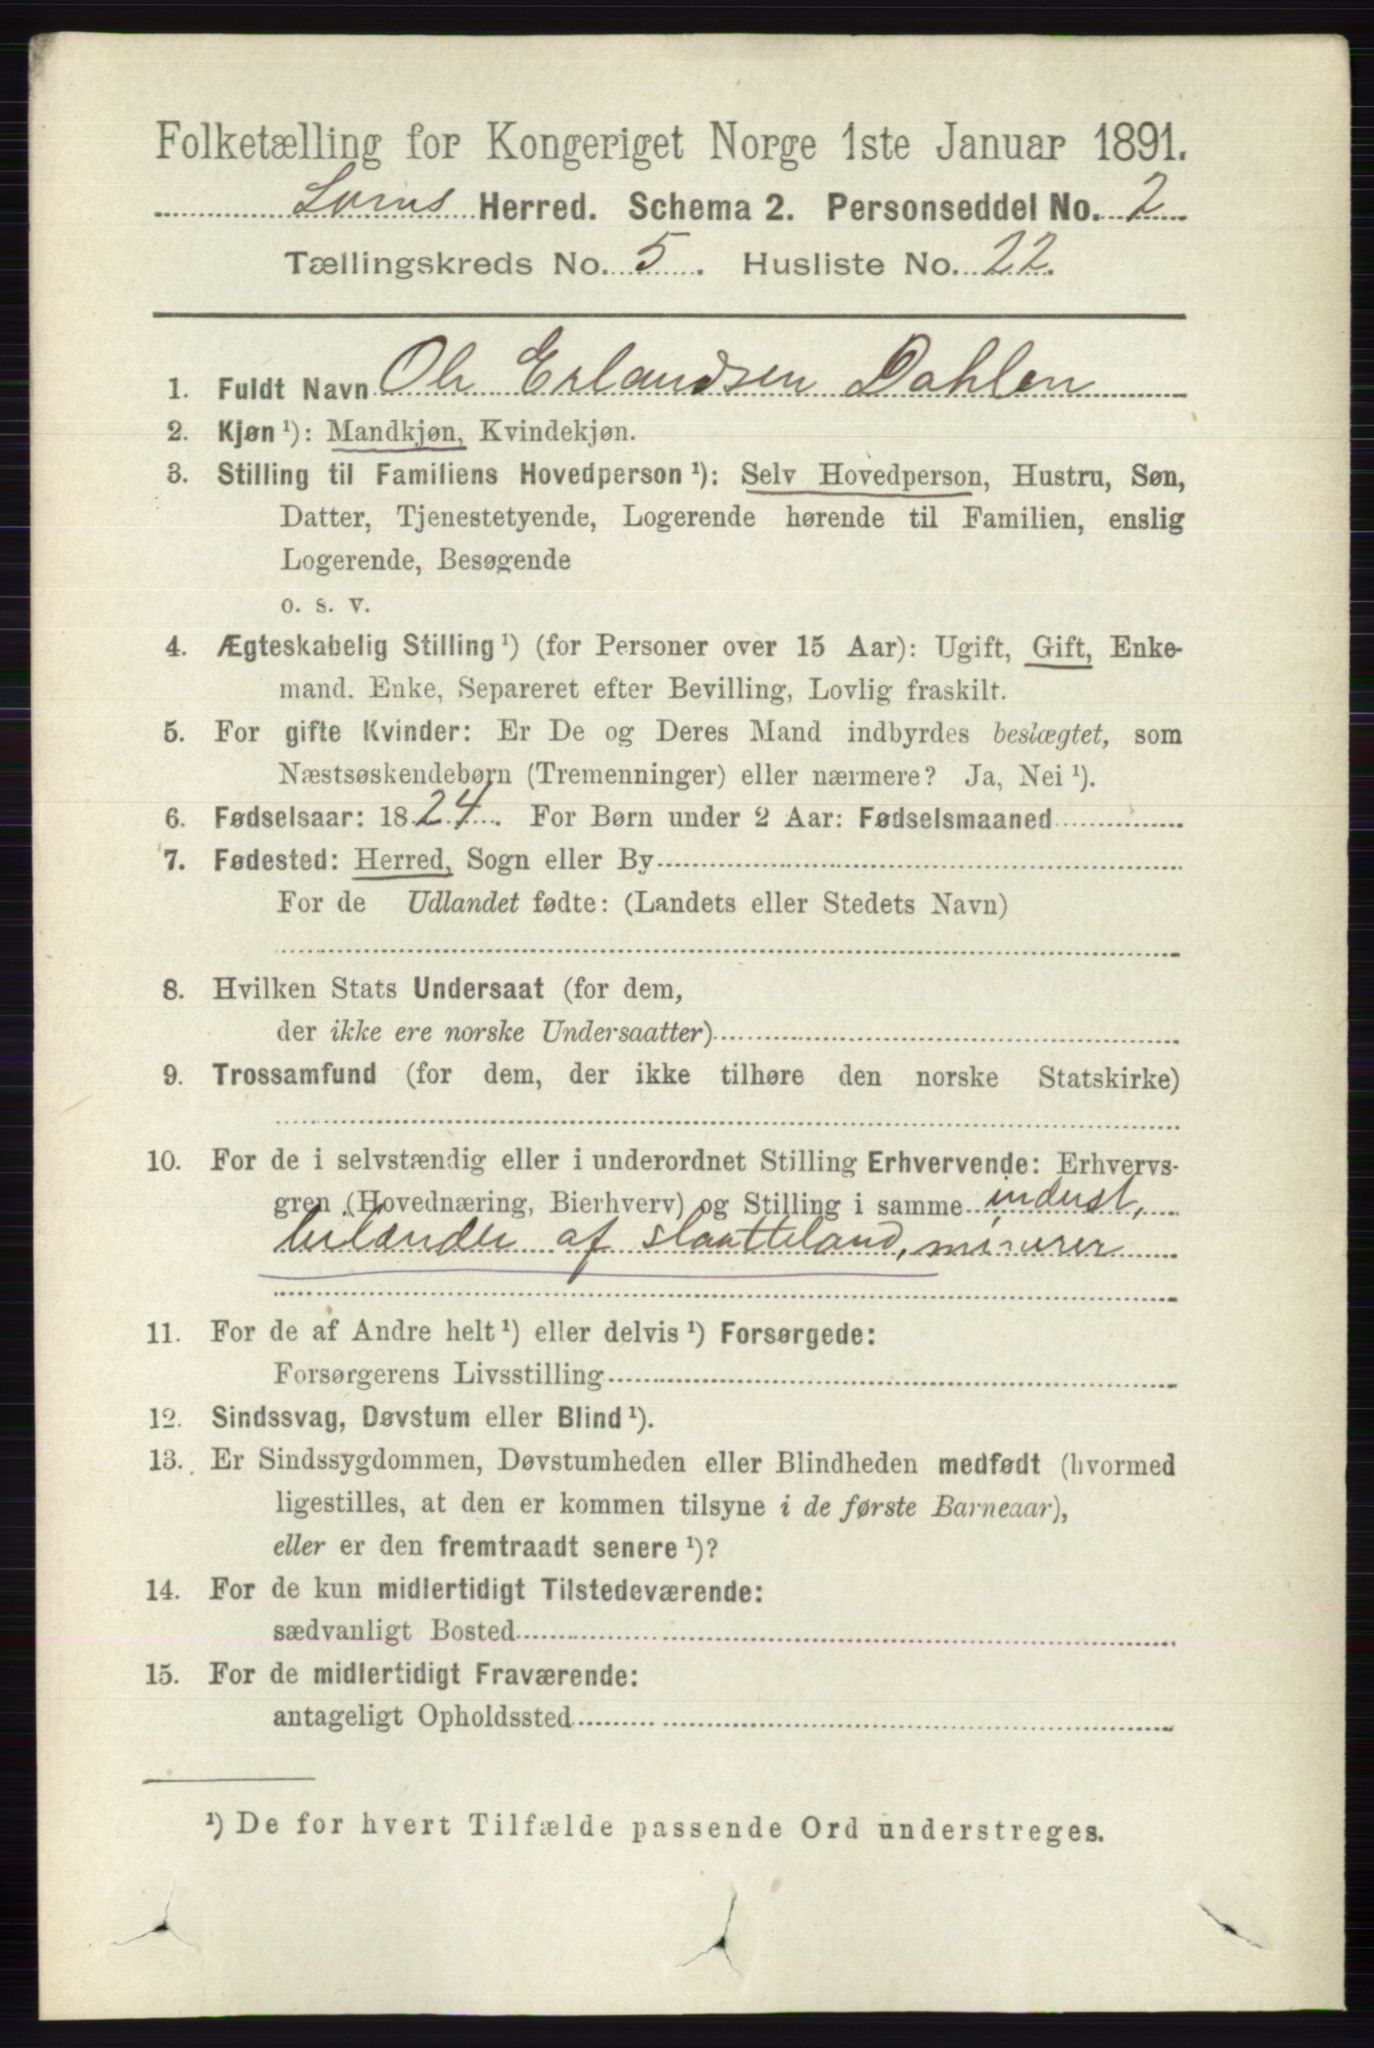 Folketælling for Kongeriget Norge 1ste Januar 1891.
Loms Herred. Schema 2. Personseddel No. 2
Tællingskreds No. 5. Husliste No. 22.
1. Fuldt Navn Ole Erlandsen Dahlen
2. Kjøn ¹): Mandkjøn, Kvindekjøn.
3. Stilling til Familiens Hovedperson ¹): Selv Hovedperson, Hustru, Søn,
Datter, Tjenestetyende, Logerende hørende til Familien, enslig
Logerende, Besøgende
o. s. v.
4. Ægteskabelig Stilling ¹) (for Personer over 15 Aar): Ugift, Gift, Enke-
mand. Enke, Separeret efter Bevilling, Lovlig fraskilt.
5. For gifte Kvinder: Er De og Deres Mand indbyrdes beslægtet, som
Næstsøskendebørn (Tremenninger) eller nærmere? Ja, Nei ¹).
6. Fødselsaar: 1824. For Børn under 2 Aar: Fødselsmaaned
7. Fødested: Herred, Sogn eller By
For de Udlandet fødte: (Landets eller Stedets Navn)
8. Hvilken Stats Undersaat (for dem,
der ikke ere norske Undersaatter)
9. Trossamfund (for dem, der ikke tilhøre den norske Statskirke)
10. For de i selvstændig eller i underordnet Stilling Erhvervende: Erhvervs-
gren (Hovednæring, Bierhverv) og Stilling i samme inderst,
leilænder af slaatteland, minerer
11. For de af Andre helt ¹) eller delvis ¹) Forsørgede:
Forsørgerens Livsstilling
12. Sindssvag, Døvstum eller Blind ¹).
13. Er Sindssygdommen, Døvstumheden eller Blindheden medfødt (hvormed
ligestilles, at den er kommen tilsyne i de første Barneaar),
eller er den fremtraadt senere ¹)?
14. For de kun midlertidigt Tilstedeværende:
sædvanligt Bosted
15. For de midlertidigt Fraværende:
antageligt Opholdssted
¹) De for hvert Tilfælde passende Ord understreges.